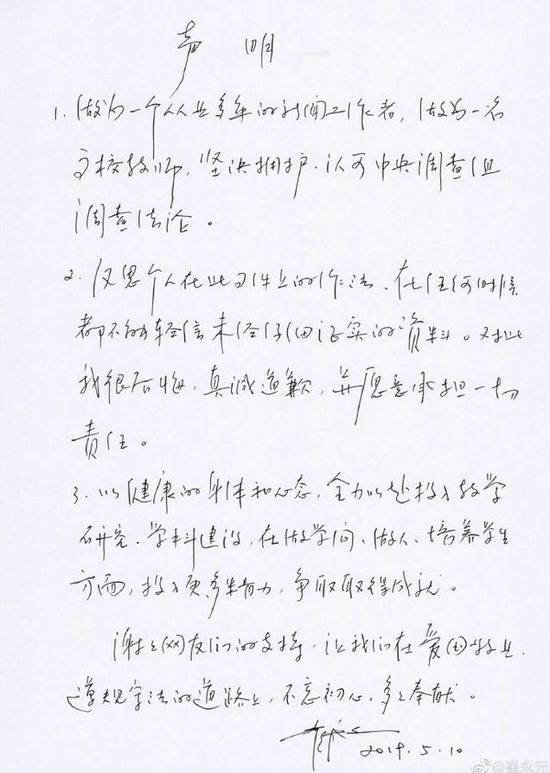 声 明
1. 做为一个从业多年的新闻工作者，做为一名
高校教师，坚决拥护、认可中央调查组
调查结论。
2. 反思个人在此事件上的作法，在任何时候
都不能轻信未经仔细证实的资料。对此
我很后悔，真诚道歉，并愿意承担一切
责任。
3. 以健康的身体和心态，全力以赴投入教学
研究、学科建设，在做学问、做人、培养学生
方面，投入更多精力，争取取得成就。
谢谢网友们的支持，让我们在爱国敬业
遵规守法的道路上，不忘初心，多多奉献。
2019.5.10
@崔永元